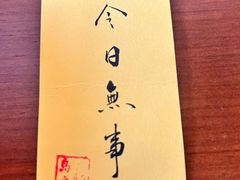 今日無事